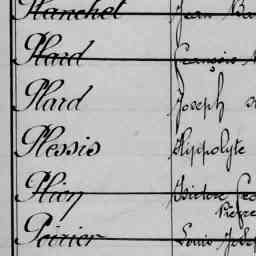 Planchet Jean
Plard François
Plard Joseph
Plessis Hyppolyte
Plion Isidore
Pierre
Poirier Louis